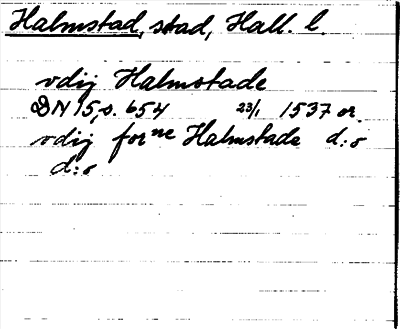 Halmstad, stad, Hall. l.
vdij Halmstade
DN 15, s. 654 23/1 1537 or.
vdij forne Halmstade d:o
d:o